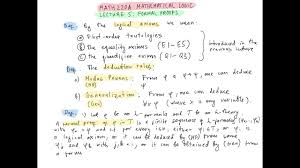 MATH 220A MATHEMATICAL LOGIC
LECTURE 5: FORMAL PROOFS
Def. By the logical axioms we mean:
① First-order tautologies
② The equality axioms (E1-E5)
③ The quantifier axioms (Q1-Q3)
Introduced in the
previous lecture
Def. The deduction rules:
ⓐ Modus Ponens: From φ and φ→ψ, we can deduce
(MP) ψ.
ⓑ Generalization: From φ we can deduce ∀x φ
(Gen) (where x is any variable).
Def. Let φ be an L-formula and T be an L-theory
A formal proof of φ in T is a finite sequence of L-formulas
with φ and if
logical axiom, or it can be deduced by (MP) from some
and with or it can be obtained by (Gen) from